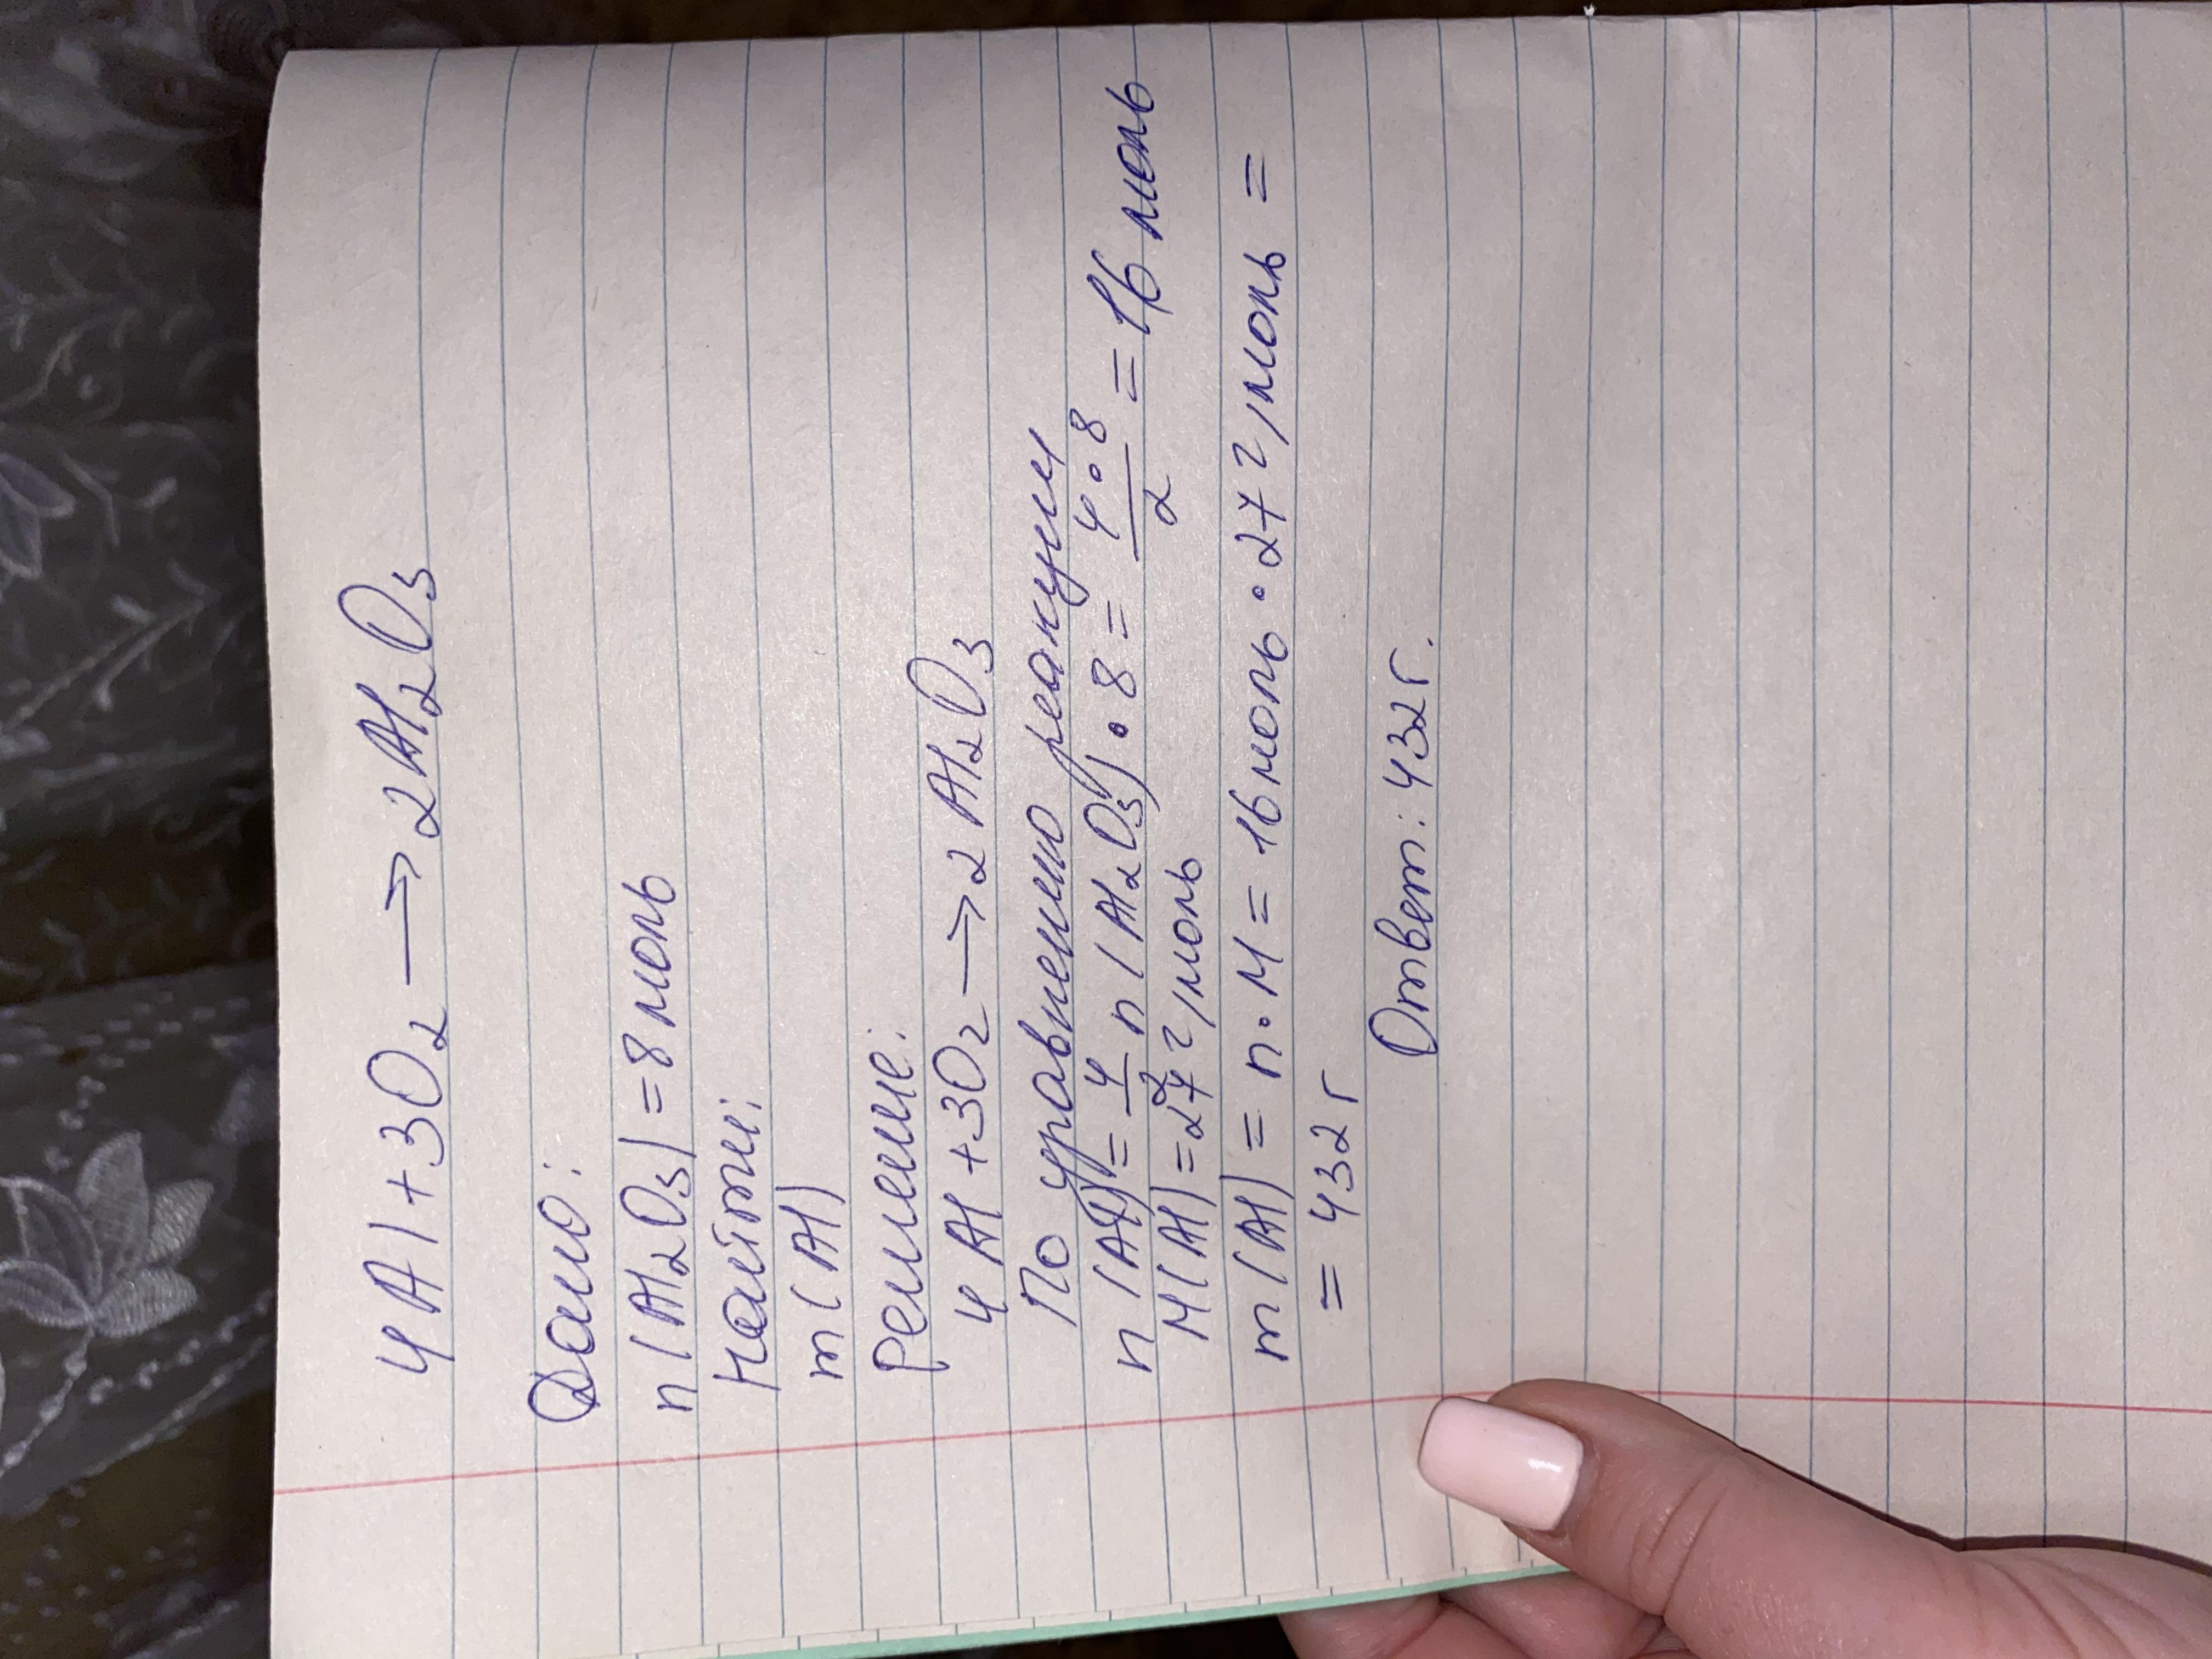 4Al+3O₂ → 2Al₂O₃
Дано:
n(Al₂O₃)=8моль
Найти:
m(Al)
Решение:
4Al+3O₂ → 2Al₂O₃
По уравнению реакции
n(Al)=4/2 n(Al₂O₃)•8=4•8/2=16моль
M(Al)=27г/моль
m(Al)=n•M=16моль•27г/моль=
=432г
Ответ: 432г.